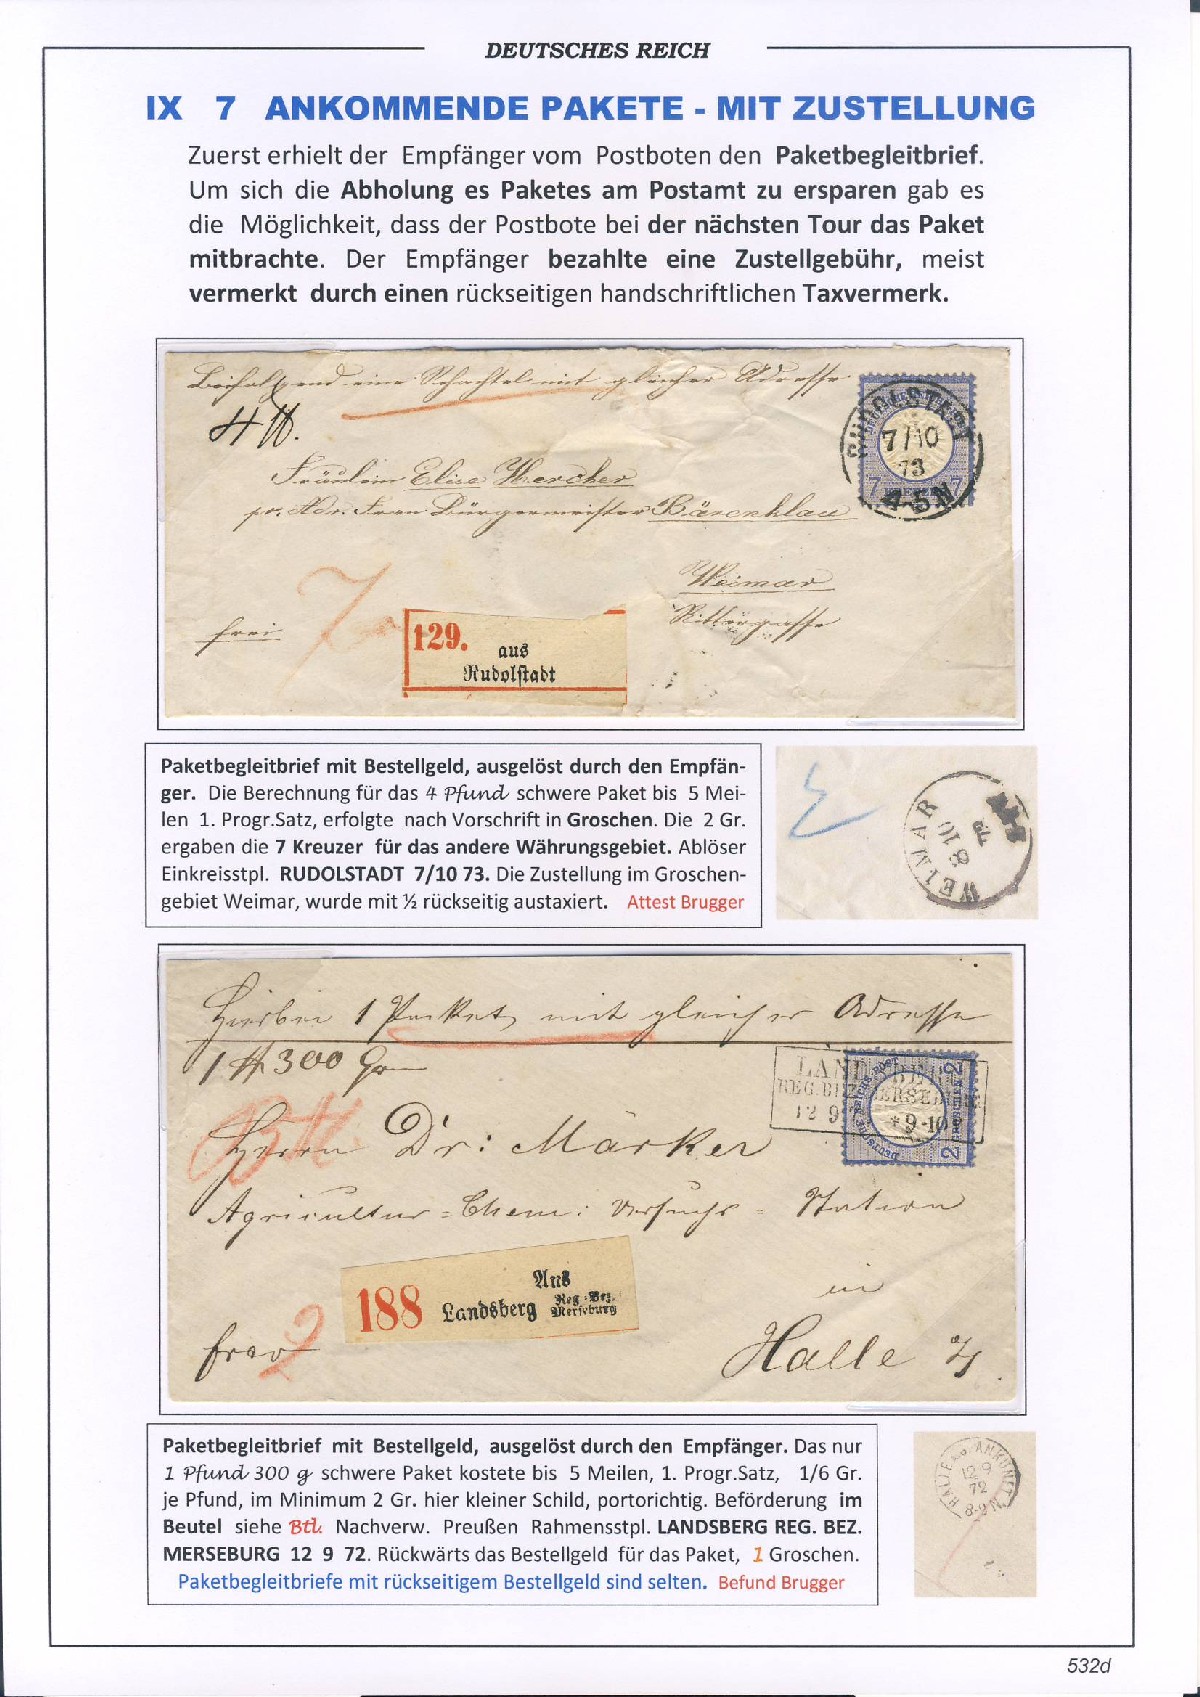 DEUTSCHES REICH
IX 7 ANKOMMENDE PAKETE - MIT ZUSTELLUNG
Zuerst erhielt der Empfänger vom Postboten den Paketbegleitbrief.
Um sich die Abholung es Paketes am Postamt zu ersparen gab es
die Möglichkeit, dass der Postbote bei der nächsten Tour das Paket
mitbrachte. Der Empfänger bezahlte eine Zustellgebühr, meist
vermerkt durch einen rückseitigen handschriftlichen Taxvermerk.
eine Schachtel mit gleicher Adresse
4 ℔.
RUDOLSTADT
7/10
73
4-5N
7 7
Fräulein Elise Hercher
pr. Adr. Frau Bürgermeister Bärenklau
Weimar
Rittergasse
frei
7
129.
aus
Rudolstadt
Paketbegleitbrief mit Bestellgeld, ausgelöst durch den Empfän-
ger. Die Berechnung für das 4 Pfund schwere Paket bis 5 Mei-
len 1. Progr.Satz, erfolgte nach Vorschrift in Groschen. Die 2 Gr.
ergaben die 7 Kreuzer für das andere Währungsgebiet. Ablöser
Einkreisstpl. RUDOLSTADT 7/10 73. Die Zustellung im Groschen-
gebiet Weimar, wurde mit ½ rückseitig austaxiert. Attest Brugger
WEIMAR
8 10
73
Hierbei 1 Packet mit gleicher Adresse
1 ℔ 300 Gr
LANDSBERG
REG. BEZ. MERSEBURG
12 9 * 9-10
DEUTSCHE REICHS POST
2 GROSCHEN 2
Btl.
Herrn Dr: Märker
Agricultur = Chem: Versuchs = Station
in
Halle a/S.
188
Aus
Landsberg Reg.-Bez.
Merseburg
frco
2
Paketbegleitbrief mit Bestellgeld, ausgelöst durch den Empfänger. Das nur
1 Pfund 300 g schwere Paket kostete bis 5 Meilen, 1. Progr.Satz, 1/6 Gr.
je Pfund, im Minimum 2 Gr. hier kleiner Schild, portorichtig. Beförderung im
Beutel siehe Btl. Nachverw. Preußen Rahmensstpl. LANDSBERG REG. BEZ.
MERSEBURG 12 9 72. Rückwärts das Bestellgeld für das Paket, 1 Groschen.
Paketbegleitbriefe mit rückseitigem Bestellgeld sind selten. Befund Brugger
HALLE A/S. ANKUNFT
12 9
72
8-9 N
532d